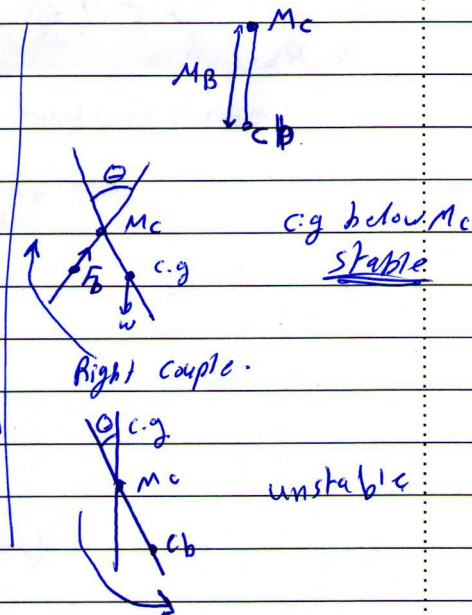 Mc
MB
Cb
θ
Mc
c.g below Mc
c.g
stable
Fb
w
Right couple.
θ c.g
Mc
unstable
Cb